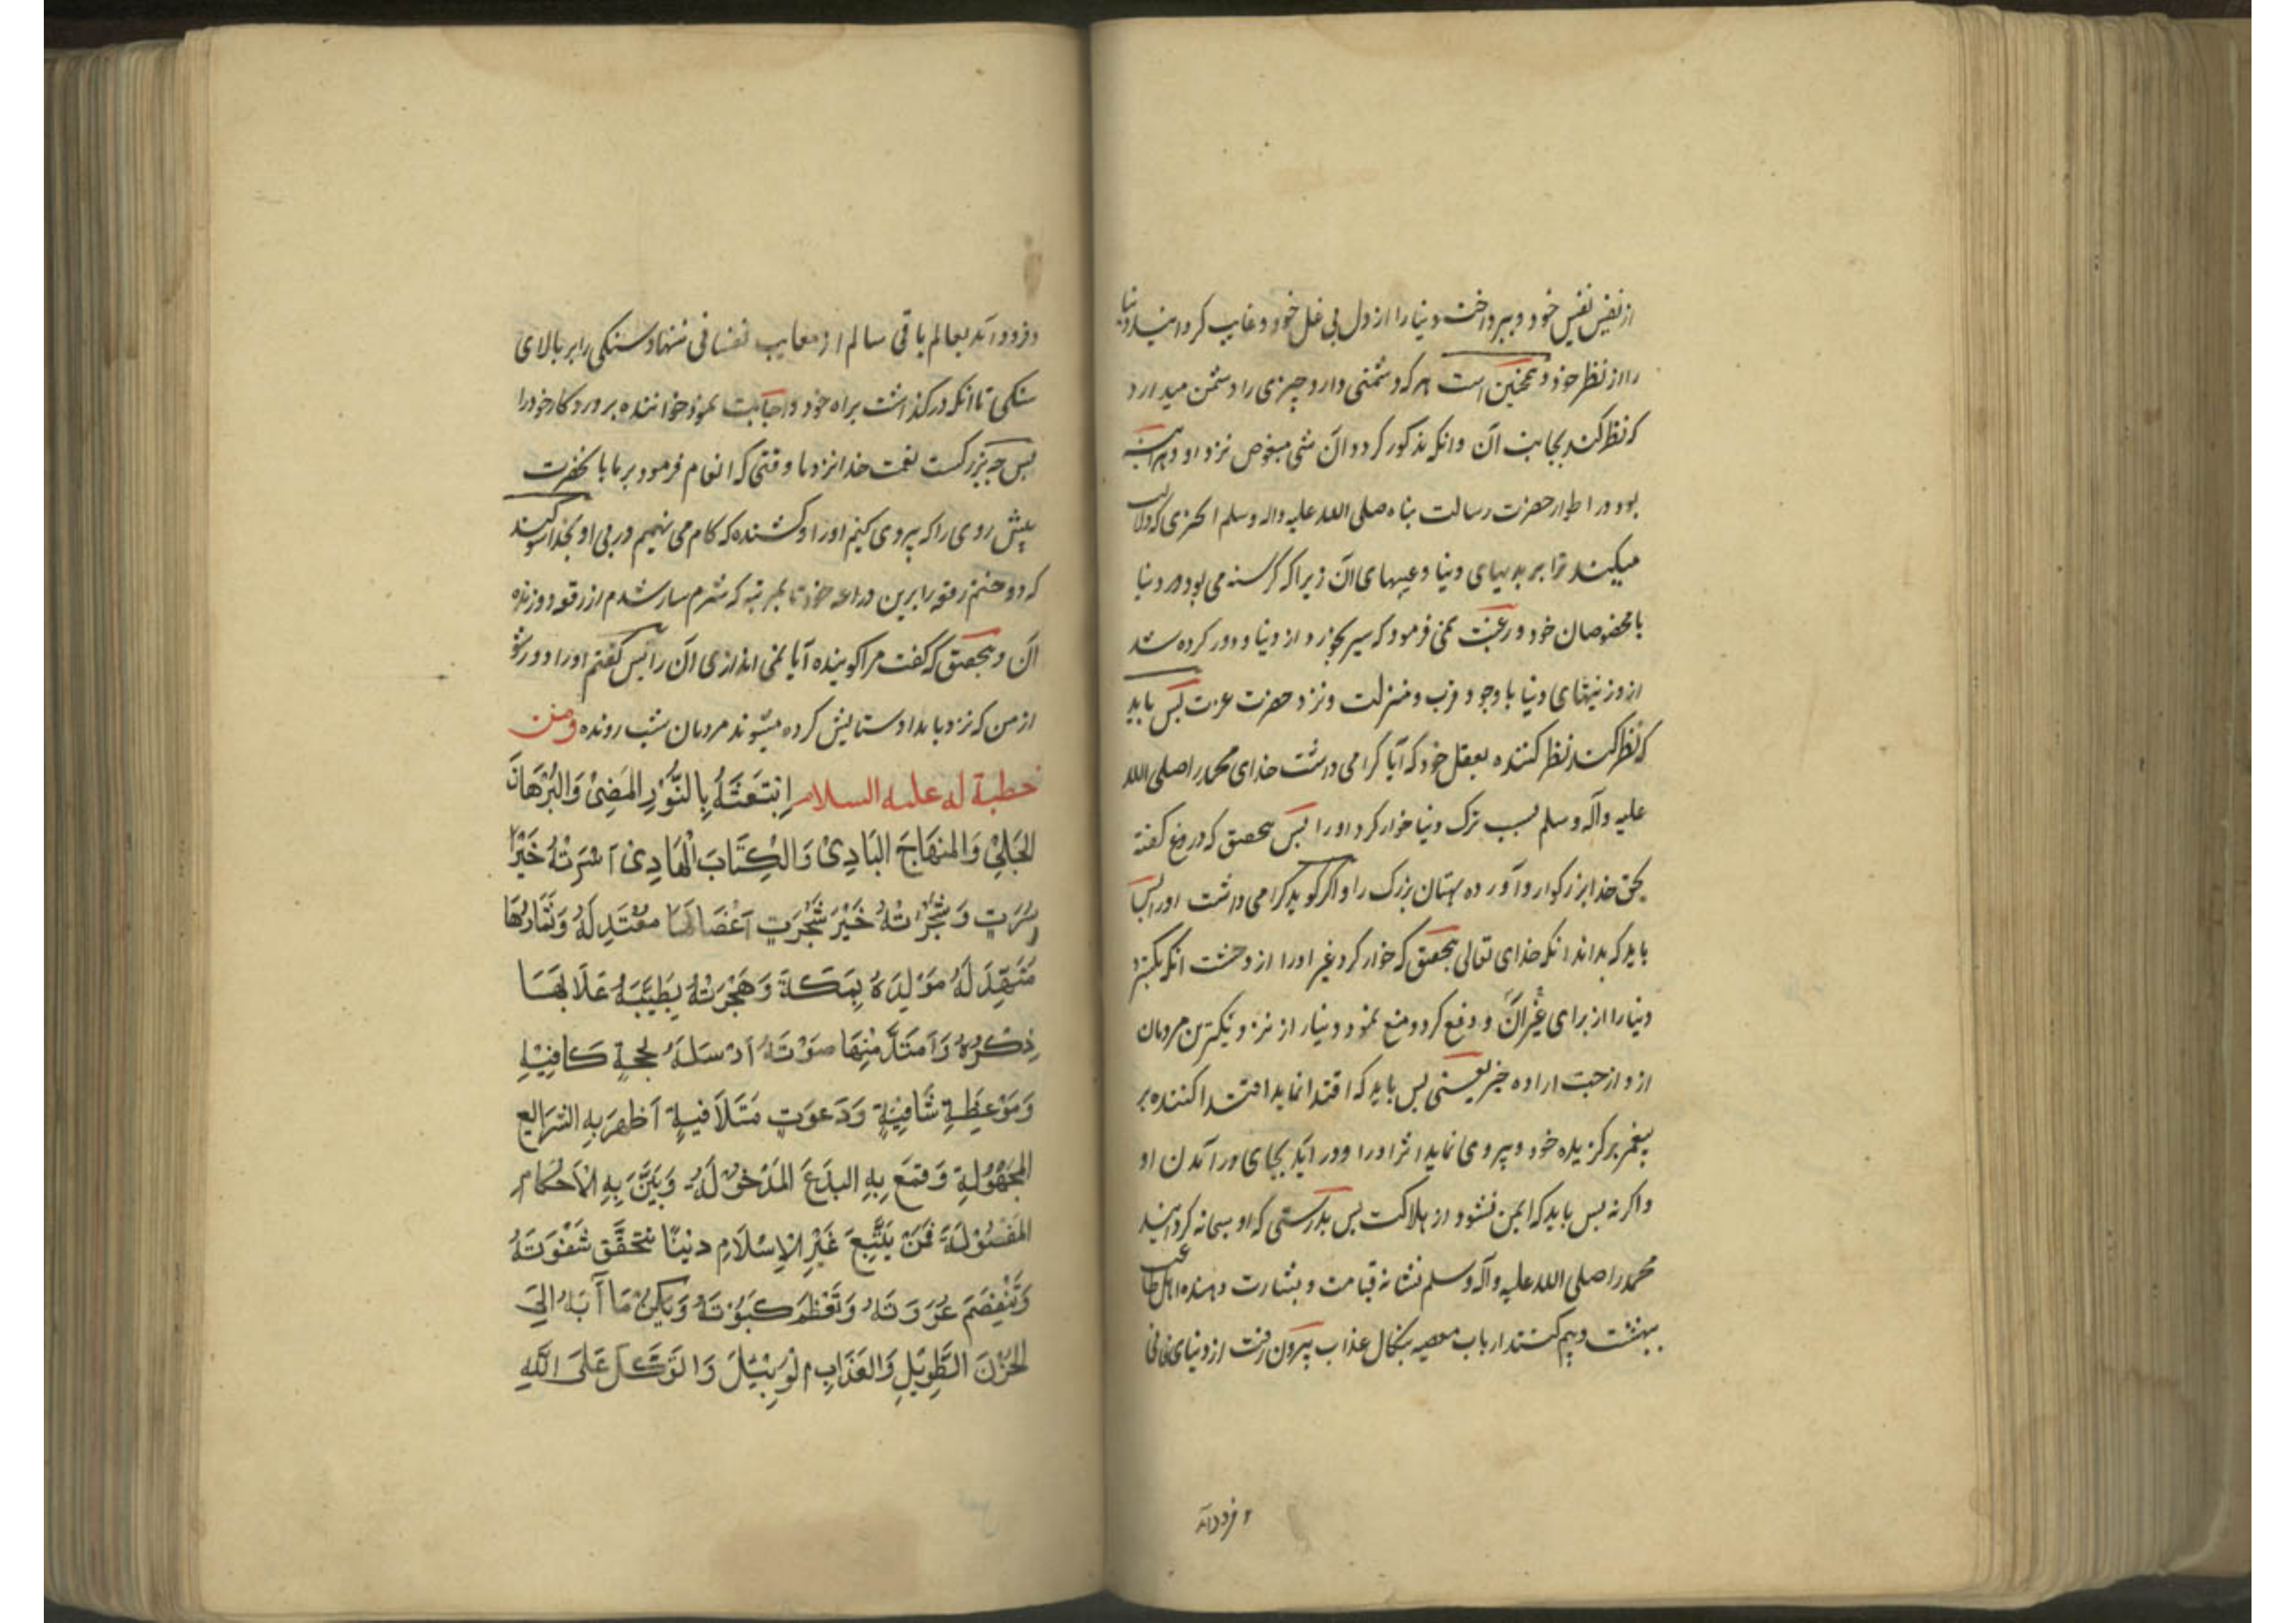 از نفیس نفیس خود و بپرداخت دنیا را از دل بی غل خود و غایب کردانید دنیا
را از نظر خود و همچنین است هر که دشمنی دارد چیزی را دشمن میدارد
که نظر کند بجانب آن و انکه مذکور کردد آن شی مبغوض نزد او و هر اینه
بود در اطوار حضرت رسالت پناه صلی الله علیه واله وسلم انچیزی که دلالت
میکند ترا بر بدیهای دنیا و عیبهای آن زیرا که کرسنه می بود در دنیا
با مخصوصان خود و رغبت نمی فرمود که سیر بخورد و از دنیا و دور کرده شد
از و زینتهای دنیا با وجود قرب و منزلت و نزد حضرت عزت پس باید
که نظر کند نظر کننده بعقل خود که آیا کرامی داشت خدای محمد را صلی الله
علیه وآله وسلم بسبب ترک دنیا خوار کرد او را پس بتحقیق که دروغ کفته
بحق خدا بزرکوار و آورده بهتان بزرک را و اکر کوید کرامی داشت او را پس
باید که بداند انکه خدای تعالی بتحقیق که خوار کرد غیر او را از و حیثیت انکه بکسترد
دنیا را از برای غیر آن و دفع کرد و منع نمود دنیا را از نزد نزدیکترین مردمان
از و از جهت اراده خیر یعنی پس باید که اقتدا نماید اقتدا کننده بر
پیغمبر برکزیده خود و پیروی نماید اثر او را و در آید بجای درآمدن او
و اکر نه پس باید که ایمن نشود از هلاکت پس بدرستی که او سبحانه کردانید
محمد را صلی الله علیه وآله وسلم نشانه قیامت و بشارت دهنده اهل طاعت
ببهشت و بیم کننده ارباب معصیه بنکال عذاب بیرون رفت از دنیای فانی
فرود آمد
و فرود آمد بعالم باقی سالم از معایب نفسانی ننهاد سنکی را بر بالای
سنکی تا انکه درکذشت براه خود و اجابت نمود خواننده پروردکار خود را
پس چه بزرکست نعمت خدا نزد ما وقتی که انعام فرمود بر ما با نحضرت
پیش روی را که پیروی کنیم او را و کشنده که کام می نهیم در پی او بخدا سوکند
که دوختم رقعه را برین دراعه خود تا بمرتبه که شرم سار شدم از رقعه دوزنده
آن و بتحقیق که کفت مرا کوینده آیا نمی اندازی آن را پس کفتم او را دور شو
از من که نزد بامداد ستایش کرده میشوند مردمان شب رونده ومن
خطبة له علیه السلام اِبْتَعَثَهُ بِالنُّورِ المُضِیْ وَالبُرْهَانَ
الجَلِیْ وَالمِنهَاجَ البَادِیْ وَالکِتَابَ الْهَادِیْ اُسْرَتُهُ خَیْرُ
اُسْرَتٍ وَشَجَرَتُهُ خَیْرَ شَجَرَتٍ اَغْصَانُهَا مُعْتَدِلَهٌ وَثِمَارُهَا
مُتَهَدِّلَهٌ مَوْلِدُهُ بِمَکَّةَ وَهِجْرَتُهُ بِطَیْبَهُ عَلَا بِهَا
ذِکْرُهُ وَاَمْتَدَّ مِنْهَا صَوْتَهُ اَرْسَلَهُ بِحُجَّةٍ کَافِیَةٍ
وَمَوْعِظَةٍ شَافِیَةٍ وَدَعوَتٍ مُتَلَافِیَةٍ اَظهَرَ بِهِ الشَّرَایِعَ
المَجْهُوْلَةِ وَقَمَعَ بِهِ البِدَعَ المَدْخُوْلَهَ وَبَیَّنَ بِهِ الْاَحْکَامَ
المَفْصُوْلَةَ فَمَنْ یَتَّبِعَ غَیْرَ الْاِسْلَامِ دِیْنًا تَتَحَقَّقَ شَقْوَتَهُ
وَتَنْفَصِمَ عُرْوَتَهُ وَتَعْظُمَ کَبْوَتَهُ وَیَکُنْ مَاۤبَهُ اِلیَ
الحُزْنَ الطَّوِیْلِ وَالعَذَابِ الْوَبِیْلَ وَاَتَوَکَّلُ عَلَی اللّٰهِ